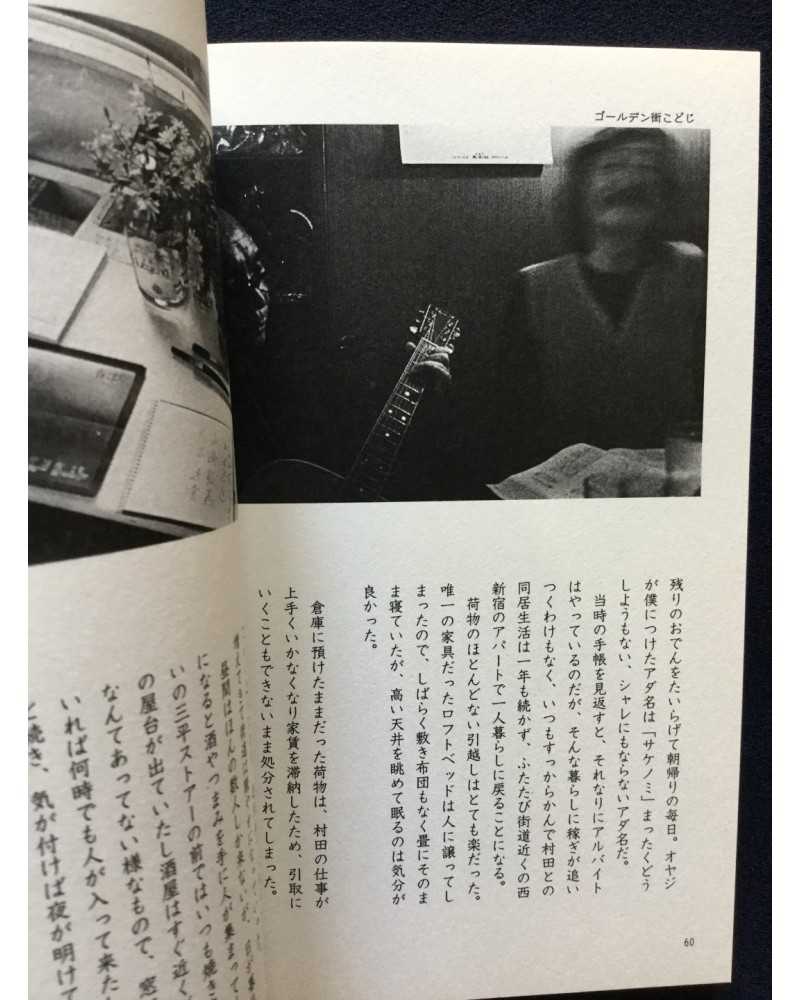 ゴールデン街こどじ
残りのおでんをたいらげて朝帰りの毎日。オヤジ
が僕につけたアダ名は「サケノミ」まったくどう
しようもない、シャレにもならないアダ名だ。
当時の手帳を見返すと、それなりにアルバイト
はやっているのだが、そんな暮らしに稼ぎが追い
つくわけもなく、いつもすっからかんで村田との
同居生活は一年も続かず、ふたたび街道近くの西
新宿のアパートで一人暮らしに戻ることになる。
荷物のほとんどない引越しはとても楽だった。
唯一の家具だったロフトベッドは人に譲ってし
まったので、しばらく敷き布団もなく畳にそのま
ま寝ていたが、高い天井を眺めて眠るのは気分が
良かった。
倉庫に預けたままだった荷物は、村田の仕事が
上手くいかなくなり家賃を滞納したため、引取に
いくこともできないまま処分されてしまった。
60
昼間はほんの数人しか来ないが、
になると酒やつまみを手に人が集まって
いの三平ストアーの前ではいつも焼き
の屋台が出ていたし酒屋はすぐ近く
なんてあってない様なもので、窓
いれば何時でも人が入って来た
と続き、気が付けば夜が明けて